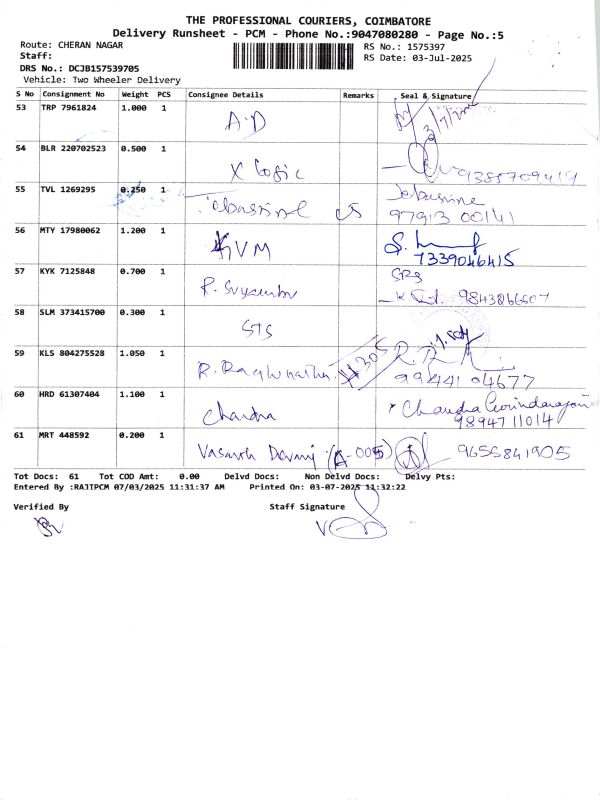 THE PROFESSIONAL COURIERS, COIMBATORE
Delivery Runsheet - PCM - Phone No.:9047080280 - Page No.:5
Route: CHERAN NAGAR RS No.: 1575397
Staff: RS Date: 03-Jul-2025
DRS No.: DCJB157539705
Vehicle: Two Wheeler Delivery
S No Consignment No Weight PCS Consignee Details Remarks Seal & Signature
53 TRP 7961824 1.000 1 A.D
54 BLR 220702523 0.500 1 X logic 9385709419
55 TVL 1269295 0.250 1 Jebasrine
97913 00141
56 MTY 17980062 1.200 1 KVM
7339046415
57 KYK 7125848 0.700 1 SRS
9843866607
58 SLM 373415700 0.300 1 STS
59 KLS 804275528 1.050 1 R.
99441 04677
60 HRD 61307404 1.100 1 Chandra Chandra Govindarajan
9894711014
61 MRT 448592 0.200 1 Vasanth (A-005) 9655841905
Tot Docs: 61 Tot COD Amt: 0.00 Delvd Docs: Non Delvd Docs: Delvy Pts:
Entered By :RAJIPCM 07/03/2025 11:31:37 AM Printed On: 03-07-2025 11:32:22
Verified By Staff Signature